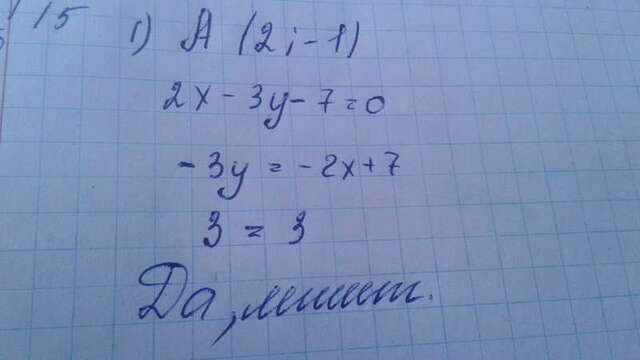 15
1) A (2; -1)
2x - 3y - 7 = 0
- 3y = - 2x + 7
3 = 3
Да,